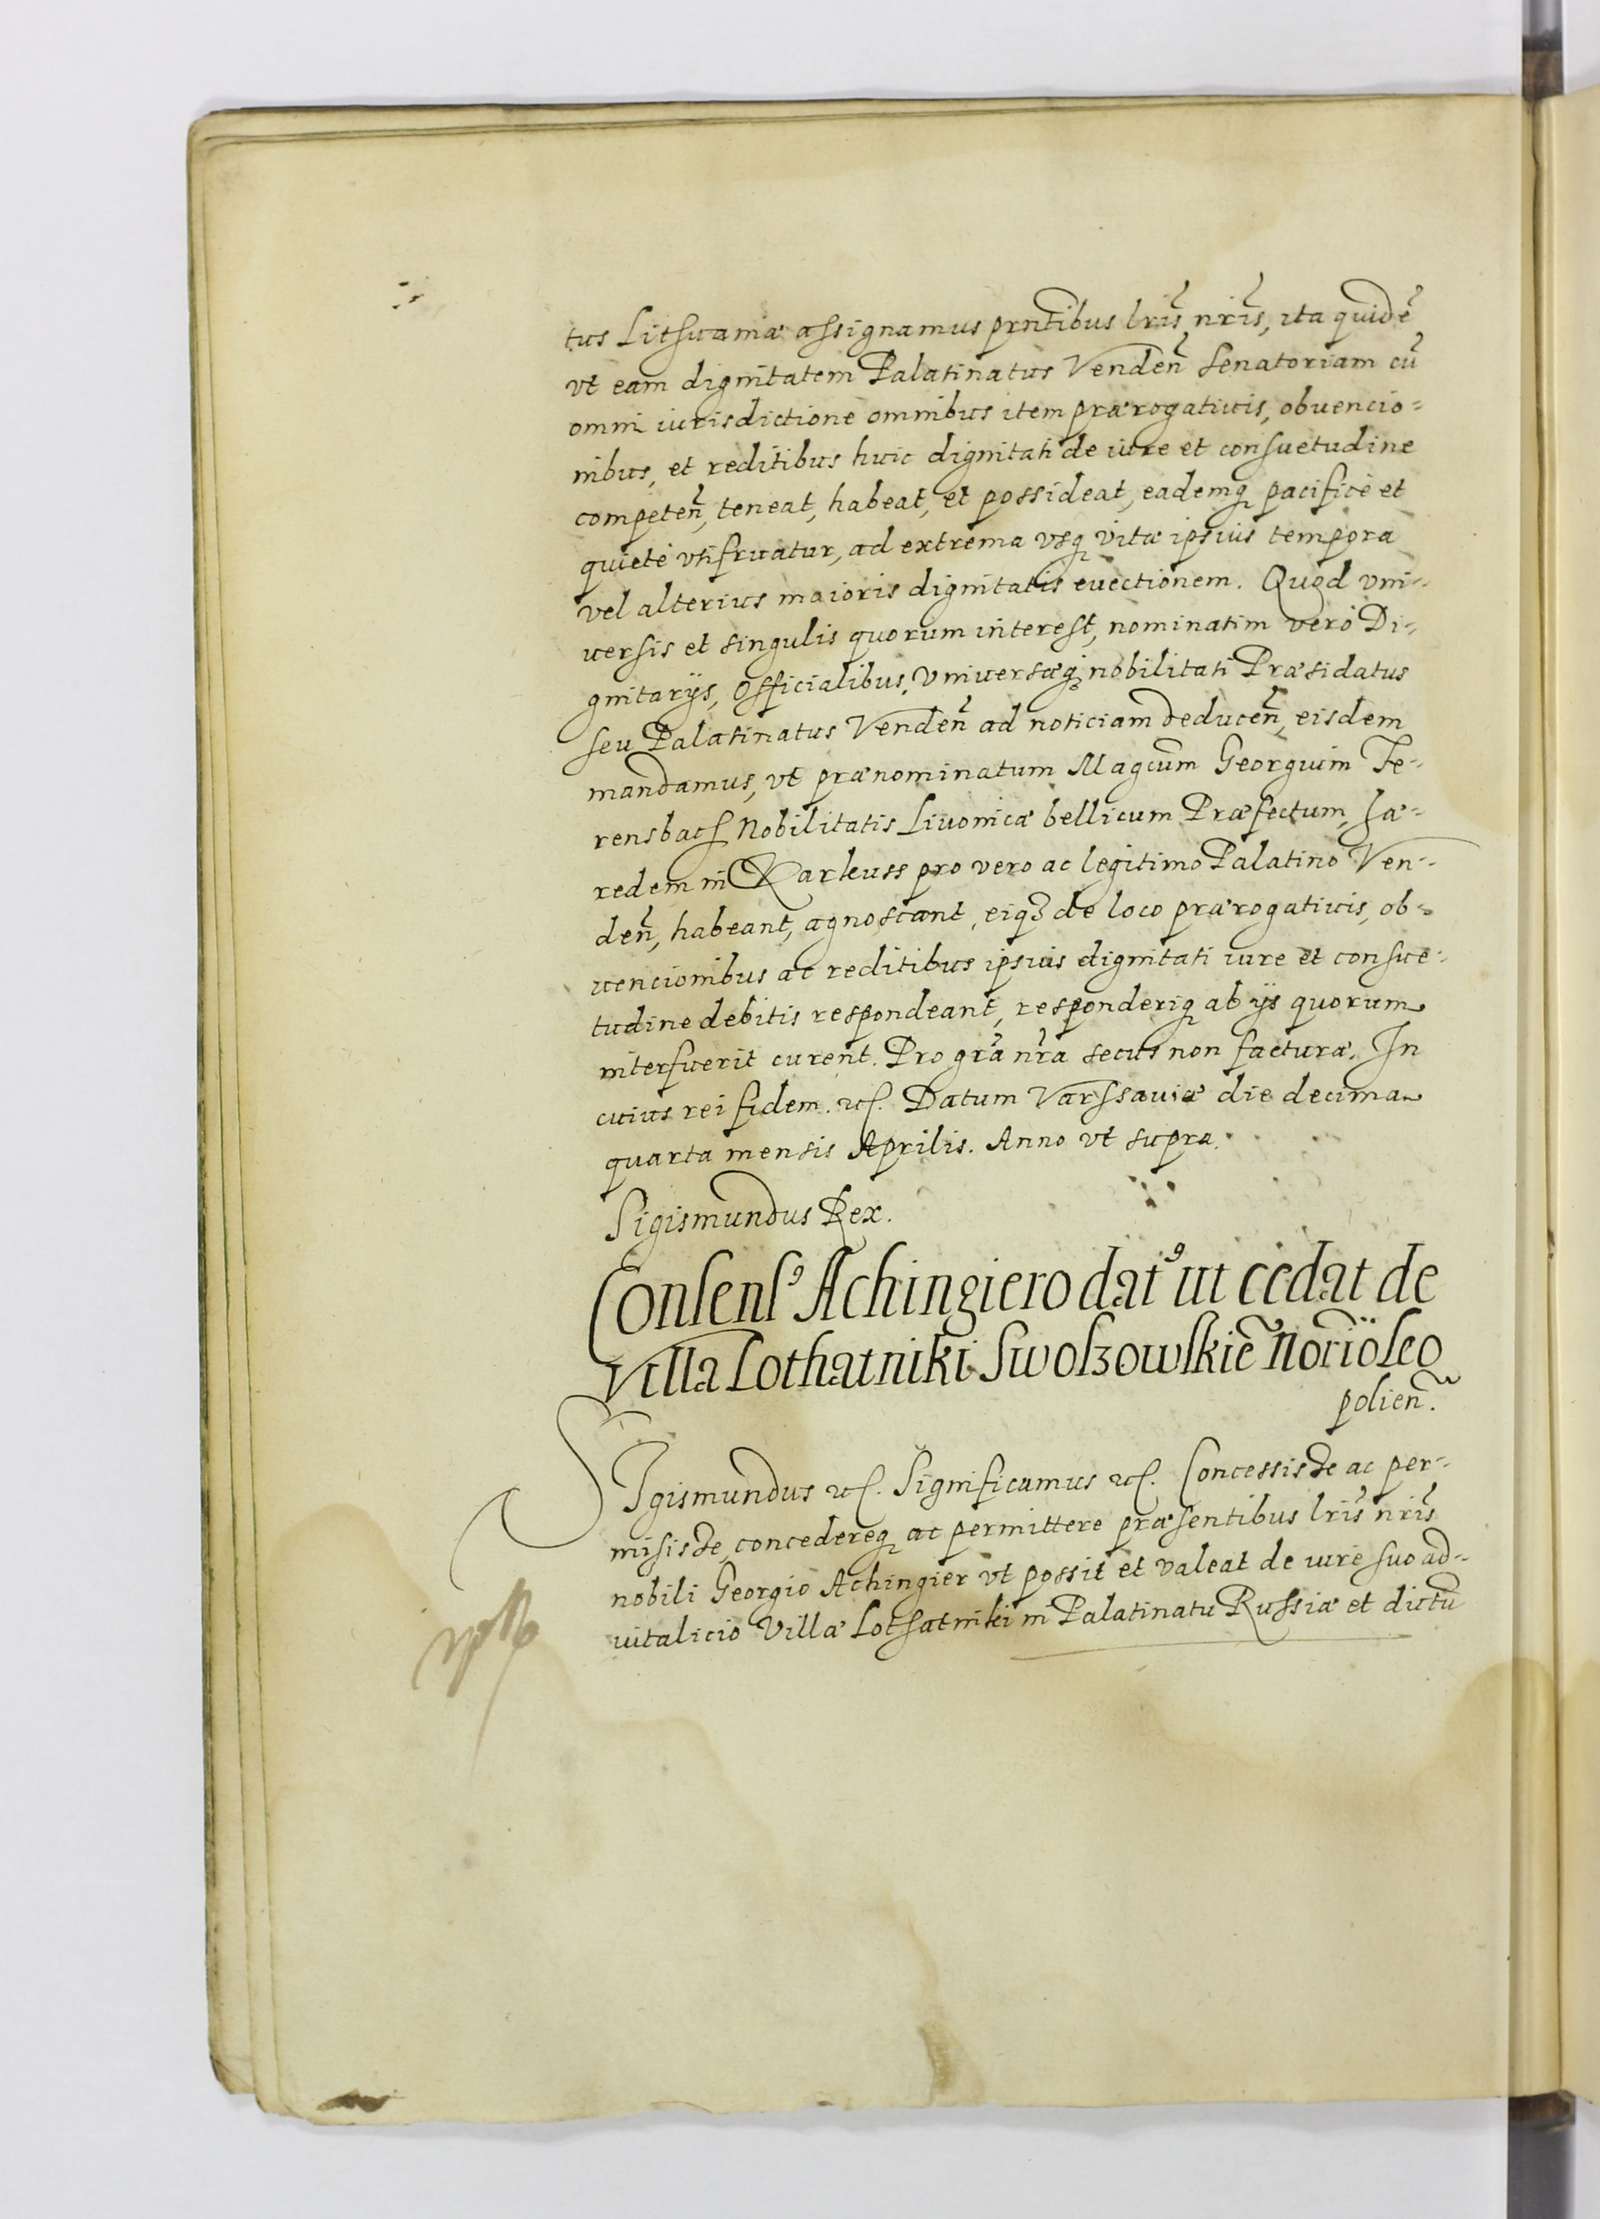 tus Lithuaniæ assignamus prntibus lris nris, ita quidē
vt eam dignitatem Palatinatus Venden̄ senatoriam cū
omni iurisdictione omnibus item prærogatiuis, obuencio-
nibus, et reditibus huic dignitati de iure et consuetudine
competen̄, teneat, habeat, et possideat, eademq pacificè et
quietè vtifruatur, ad extrema vsq vitæ ipsius tempora
vel alterius maioris dignitatis euectionem. Quod vni-
uersis et singulis quorum interest, nominatim verò Di-
gnitarijs, Officialibus, Vniversæq nobilitati Præsidatus
seu Palatinatus Venden̄ ad noticiam deducen̄, eisdem
mandamus, vt prænominatum Magcum Georgium Fe-
rensbach Nobilitatis Liuonicæ bellicum Præfectum, Hæ-
redem in Karkuss pro vero ac legitimo Palatino Ven-
den̄, habeant, agnoscant, eiq3 de loco prærogatiuis, ob-
uencionibus ac reditibus ipsius dignitati iure et consue-
tudine debitis respondeant, responderiq ab ijs quorum
interfuerit curent. Pro gra nra secus non facturæ. In
cuius rei fidem. etc. Datum Varssauiæ die decima
quarta mensis Aprilis. Anno vt supra.
Sigismundus Rex.
Consens9 Achingiero dat9 ut cedat de
Villa Lothatniki Swoszowskiē Norio Leo
polien̄.
SIgismundus etc. Significamus etc. Concessisse ac per-
misisse, concedereq ac permittere præsentibus lris nris
nobili Georgio Achingier vt possit et valeat de iure suo ad-
uitalicio Villæ Lothatniki in Palatinatu Russiæ et dictū